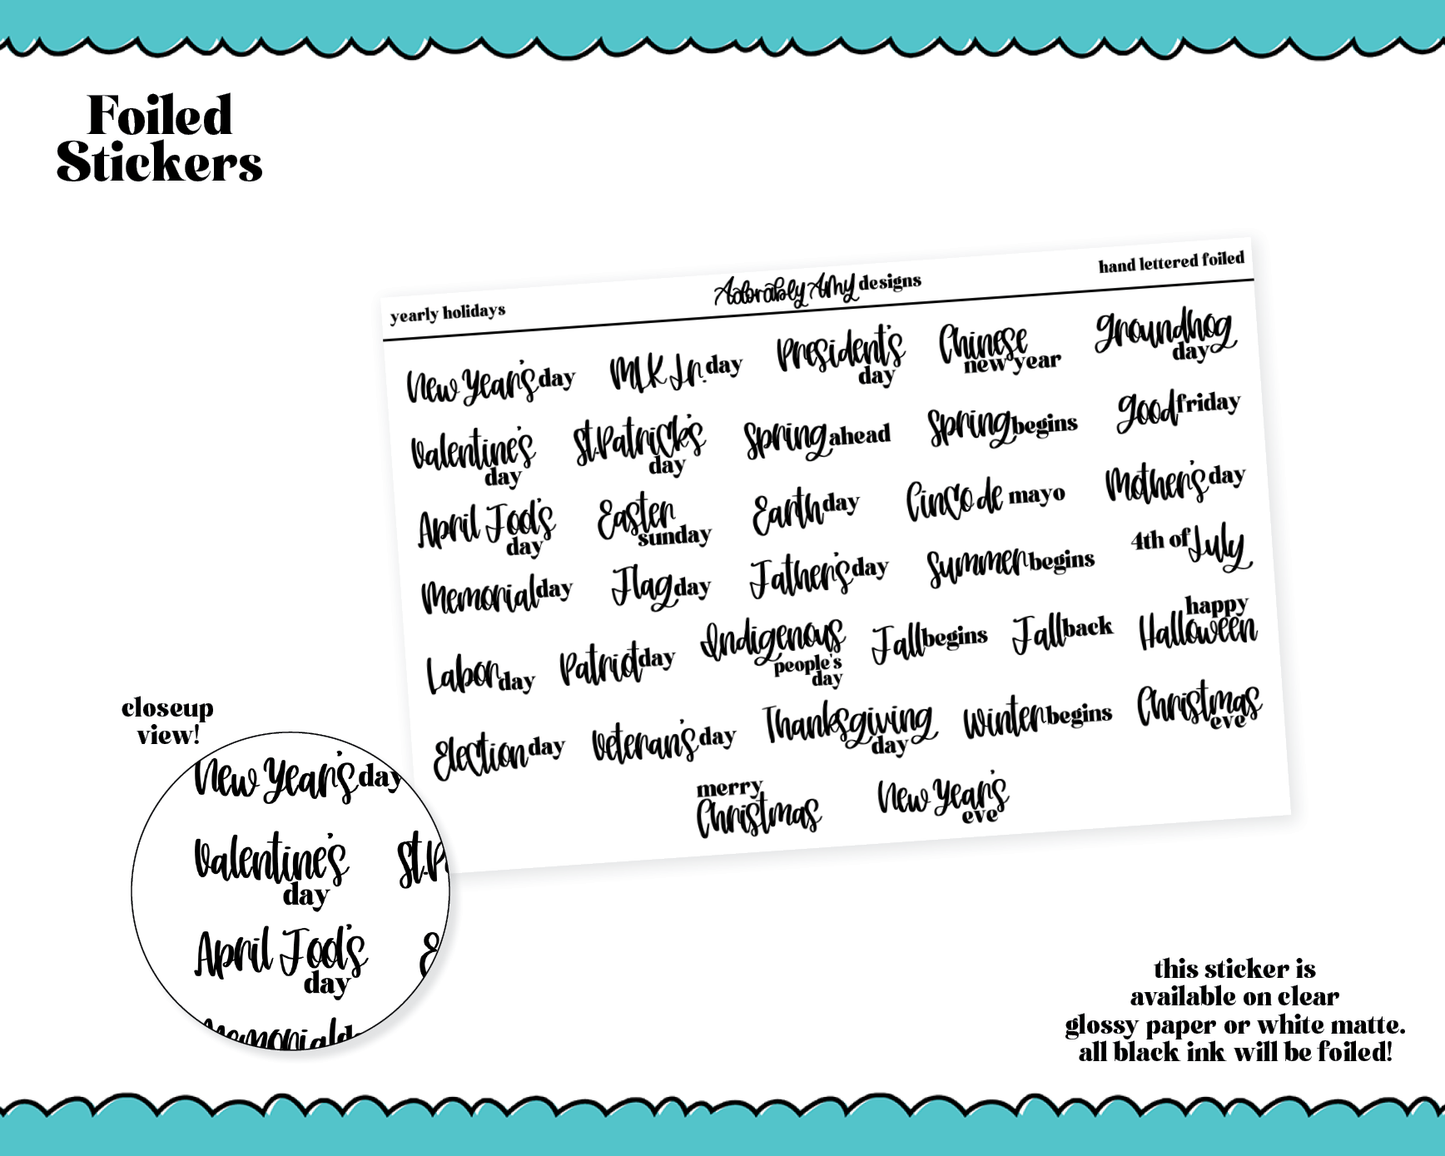 Foiled
Stickers
yearly holidays
Adorably Amy designs
hand lettered foiled
New Year's day
MLK Jr. day
President's
day
Chinese
new year
Groundhog
day
Valentine's
day
St. Patrick's
day
Spring ahead
Spring begins
Good friday
April Fool's
day
Easter
sunday
Earth day
Cinco de mayo
Mother's day
Memorial day
Flag day
Father's day
Summer begins
4th of July
Labor day
Patriot day
Indigenous
people's
day
Fall begins
Fall back
happy
Halloween
Election day
Veteran's day
Thanksgiving
day
Winter begins
Christmas
eve
merry
Christmas
New Year's
eve
closeup
view!
New Year's day
Valentine's
day
St. P
April Fool's
day
E
Memorial da
this sticker is
available on clear
glossy paper or white matte.
all black ink will be foiled!